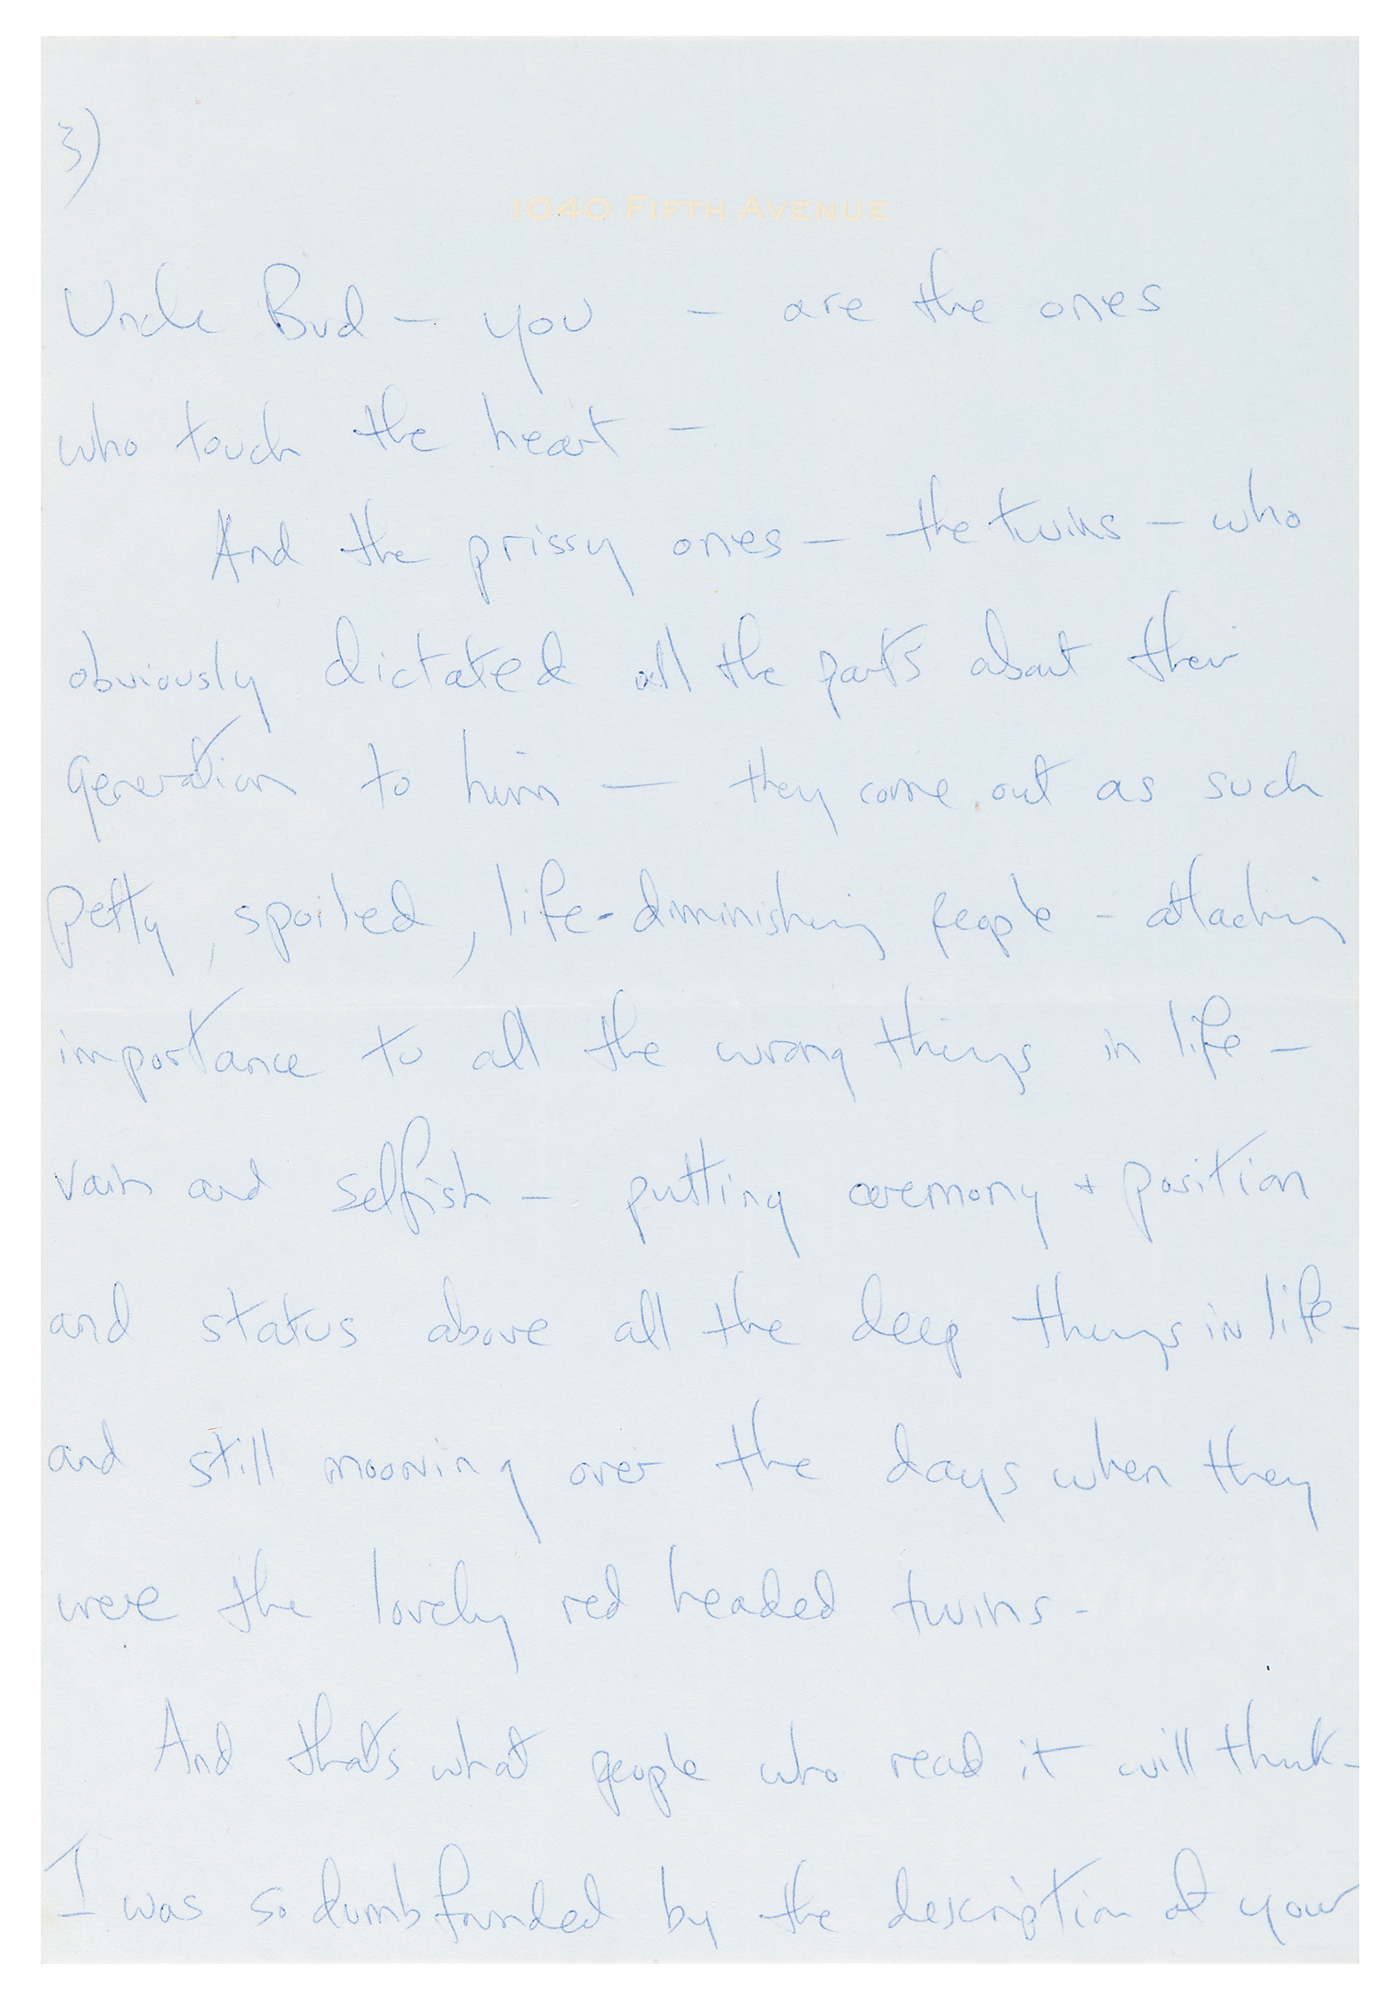 3)
1040 FIFTH AVENUE
Uncle Bud — you — are the ones
who touch the heart —
And the prissy ones — the twins — who
obviously dictated all the parts about their
generation to him — they come out as such
petty, spoiled, life-diminishing people — attaching
importance to all the wrong things in life —
vain and selfish — putting ceremony + position
and status above all the deep things in life —
and still mooning over the days when they
were the lovely red headed twins —
And that's what people who read it will think —
I was so dumbfounded by the description of your